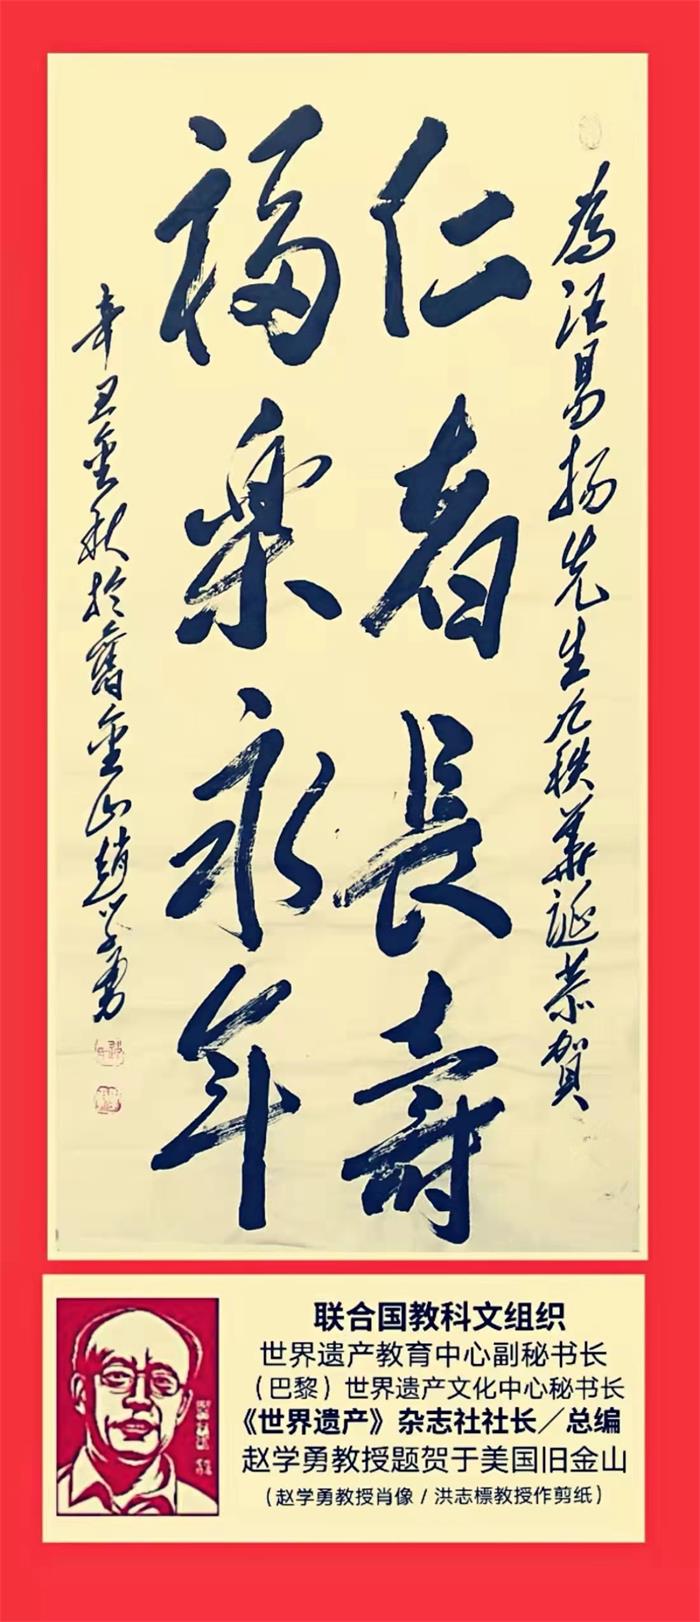 為汪易扬先生九秩華誕恭賀
仁者長壽
福樂永年
辛丑金秋於舊金山趙学勇
联合国教科文组织
世界遗产教育中心副秘书长
（巴黎）世界遗产文化中心秘书长
《世界遗产》杂志社社长／总编
赵学勇教授题贺于美国旧金山
（赵学勇教授肖像 / 洪志標教授作剪纸）